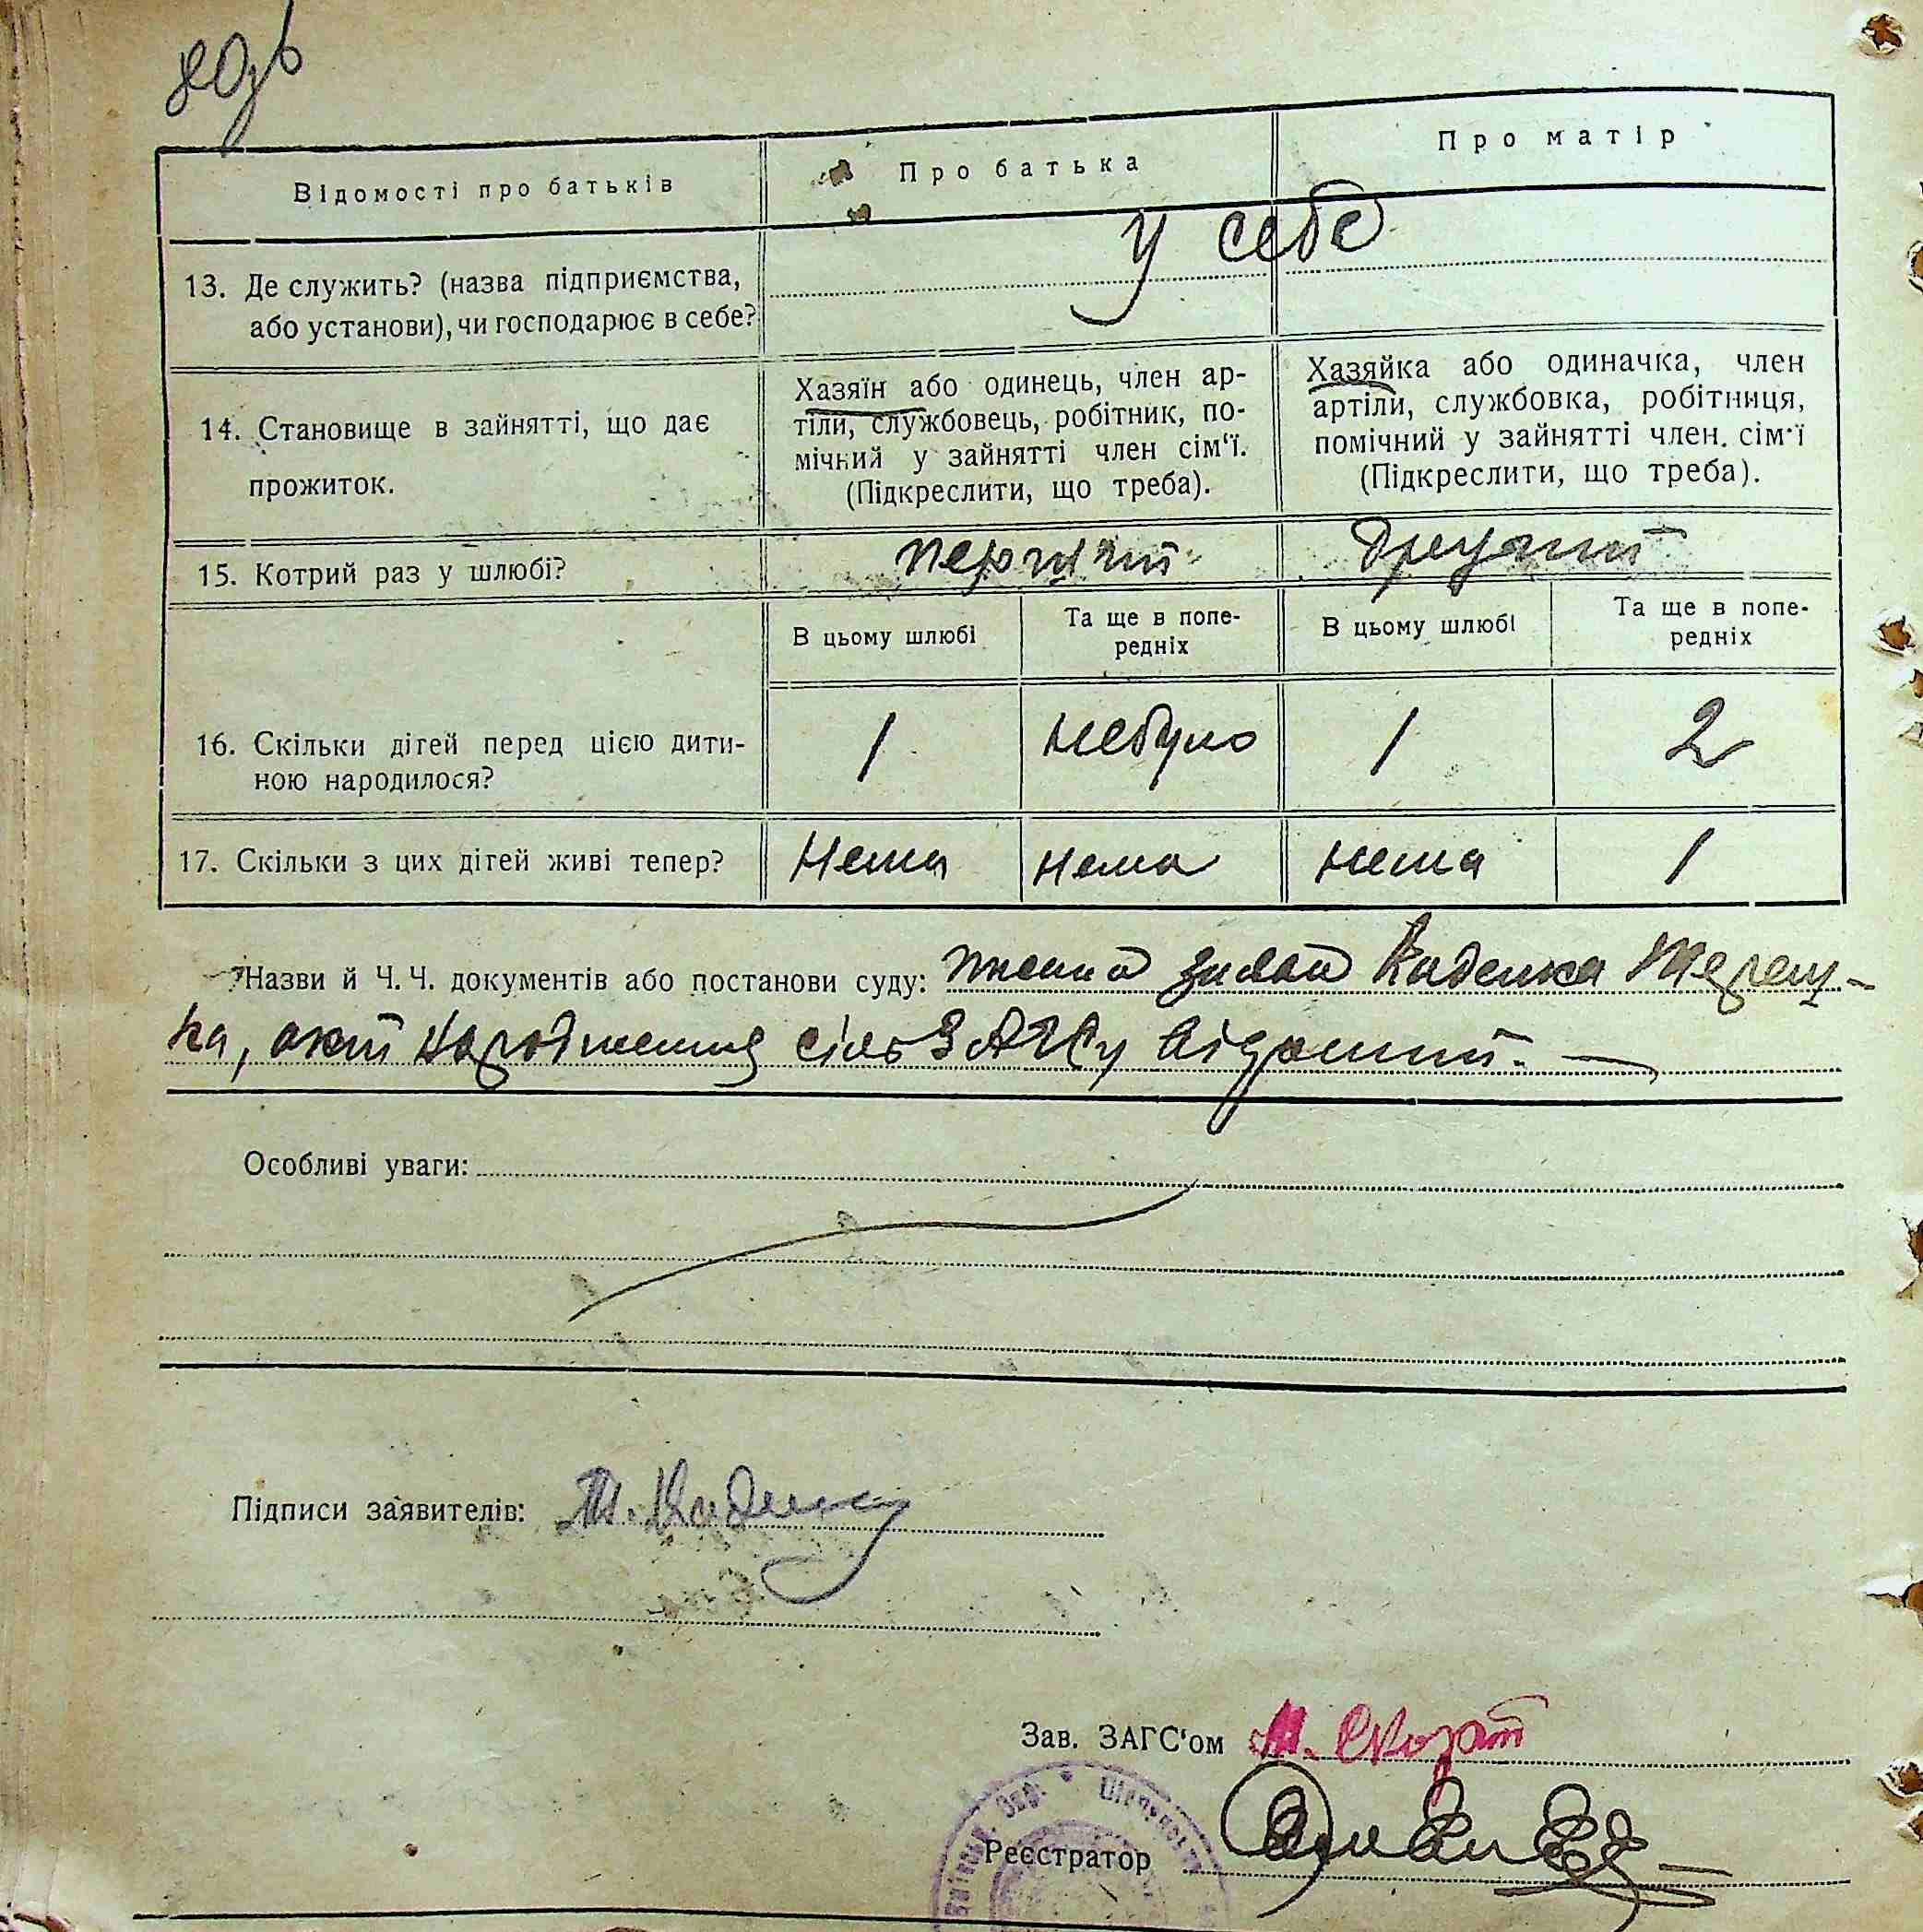 80зв
Відомості про батьків
Про батька
Про матір
13. Де служить? (назва підприємства,
або установи), чи господарює в себе?
у себе
14. Становище в зайнятті, що дає
прожиток.
Хазяїн або одинець, член ар-
тіли, службовець, робітник, по-
мічний у зайнятті член сім'ї.
(Підкреслити, що треба).
Хазяйка або одиначка, член
артіли, службовка, робітниця,
помічний у зайнятті член. сім'ї
(Підкреслити, що треба).
15. Котрий раз у шлюбі?
перший
другий
В цьому шлюбі
Та ще в попе-
редніх
В цьому шлюбі
Та ще в попе-
редніх
16. Скільки дітей перед цією дити-
ною народилося?
1
небуло
1
2
17. Скільки з цих дітей живі тепер?
Нема
нема
нема
1
Назви й Ч. Ч. документів або постанови суду: Каденка Тереш-
ка, акт народження сільЗАГСу відомий.
Особливі уваги:
Підписи заявителів: Т. Каденка
Зав. ЗАГС'ом
Реєстратор